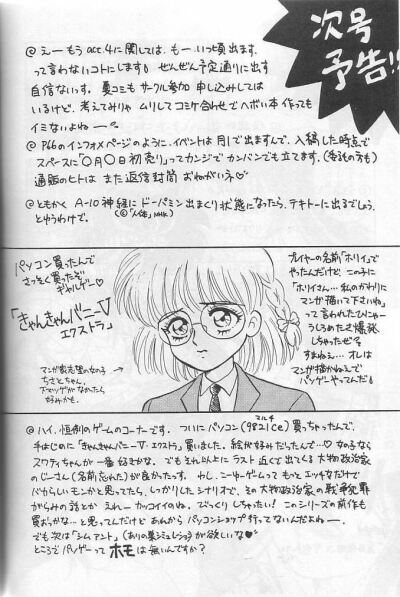 次号
予告!!
@ えー もう act.4に関しては、もー いつ頃出ます。
って言わないコトにします! ぜんぜん予定通りに出す
自信ないっす。夏コミも サークル参加 申し込みしては
いるけど、考えてみりゃ ムリしてコミケ合わせでヘボい本作っても
イミないよねー。
@ P66のインフォメページのように、イベントは 月1で出ますんで、入稿した時点で
スペースに「〇月〇日初売り」ってカンジで カンバンでも立てます。(委託の方も)
通販のヒトは また返信封筒 おねがいネ♡
@ ともかく A-10神経に ドーパミン出まくり状態になったら、テキトーに出るでしょう。
とゆうわけで。 (©「人体」NHK)
パソコン買ったんで
さっそく買ったぞ
ギャルゲー♡
「きゃんきゃんバニーV
エクストラ」
マンガ家志望の女の子
ちさとちゃん。
下マツゲがなかったら
好みかも。
プレイヤーの名前「ホリイ」で
やったんだけど この子に
「ホリイさん…私のかわりに
マンガ描いて下さいね」
って言われたひにゃー
うしろめたさ爆発
しちゃったぜ
すまねえ… オレは
マンガ描かねえで
パソゲーやってんだ!
@ ハイ、恒例のゲームのコーナーです。ついにパソコン(9821Ce)買っちゃったんで、
マルチ
手はじめに「きゃんきゃんバニーV・エクストラ」買いました。絵が好みだったんで…♡ 女の子なら
スワティちゃんが一番好きかな。でもそれ以上に ラスト近くで出てくる大物政治家
のじーさん(名前忘れた)が良かったっす。わし、こーゆーゲームって もっとエッチなだけで
バカらしいモンかと思ってたら、しっかりしたシナリオで、その大物政治家の戦争犯罪
がらみの話とか えれーカッコイイのね。びっくりしちゃったい! このシリーズの前作も
買おうかなーと思ってんだけど あれからパソコンショップ行ってないんだよねー。
でも次は「シムアント」(ありの巣シミュレーション)が欲しいな♡
ところで パソゲーって ホモは無いんですか?